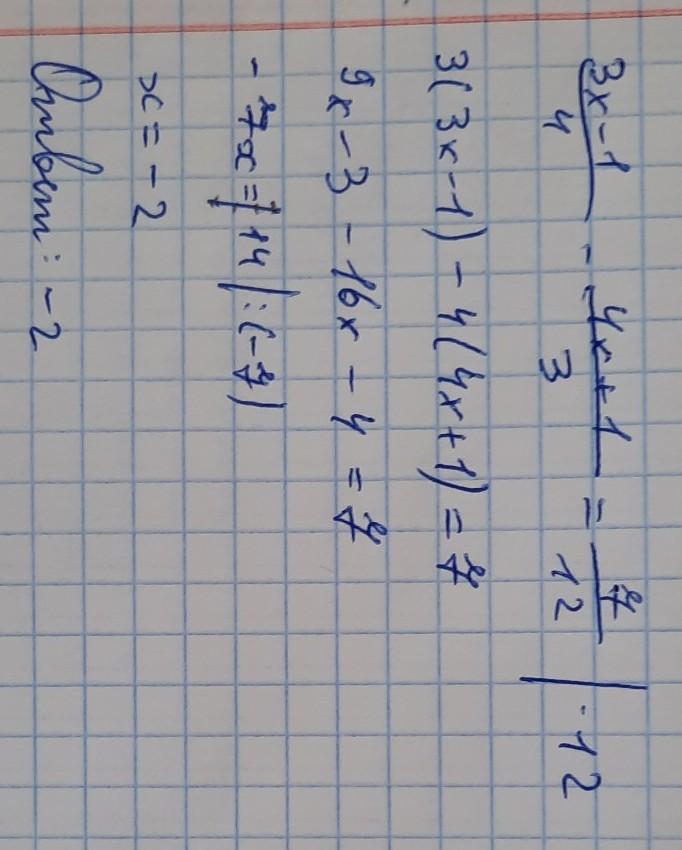 (3x-1)/4 - (4x+1)/3 = 7/12 | ·12
3(3x-1) - 4(4x+1) = 7
9x - 3 - 16x - 4 = 7
-7x = 14 | :(-7)
x = -2
Ответ: -2